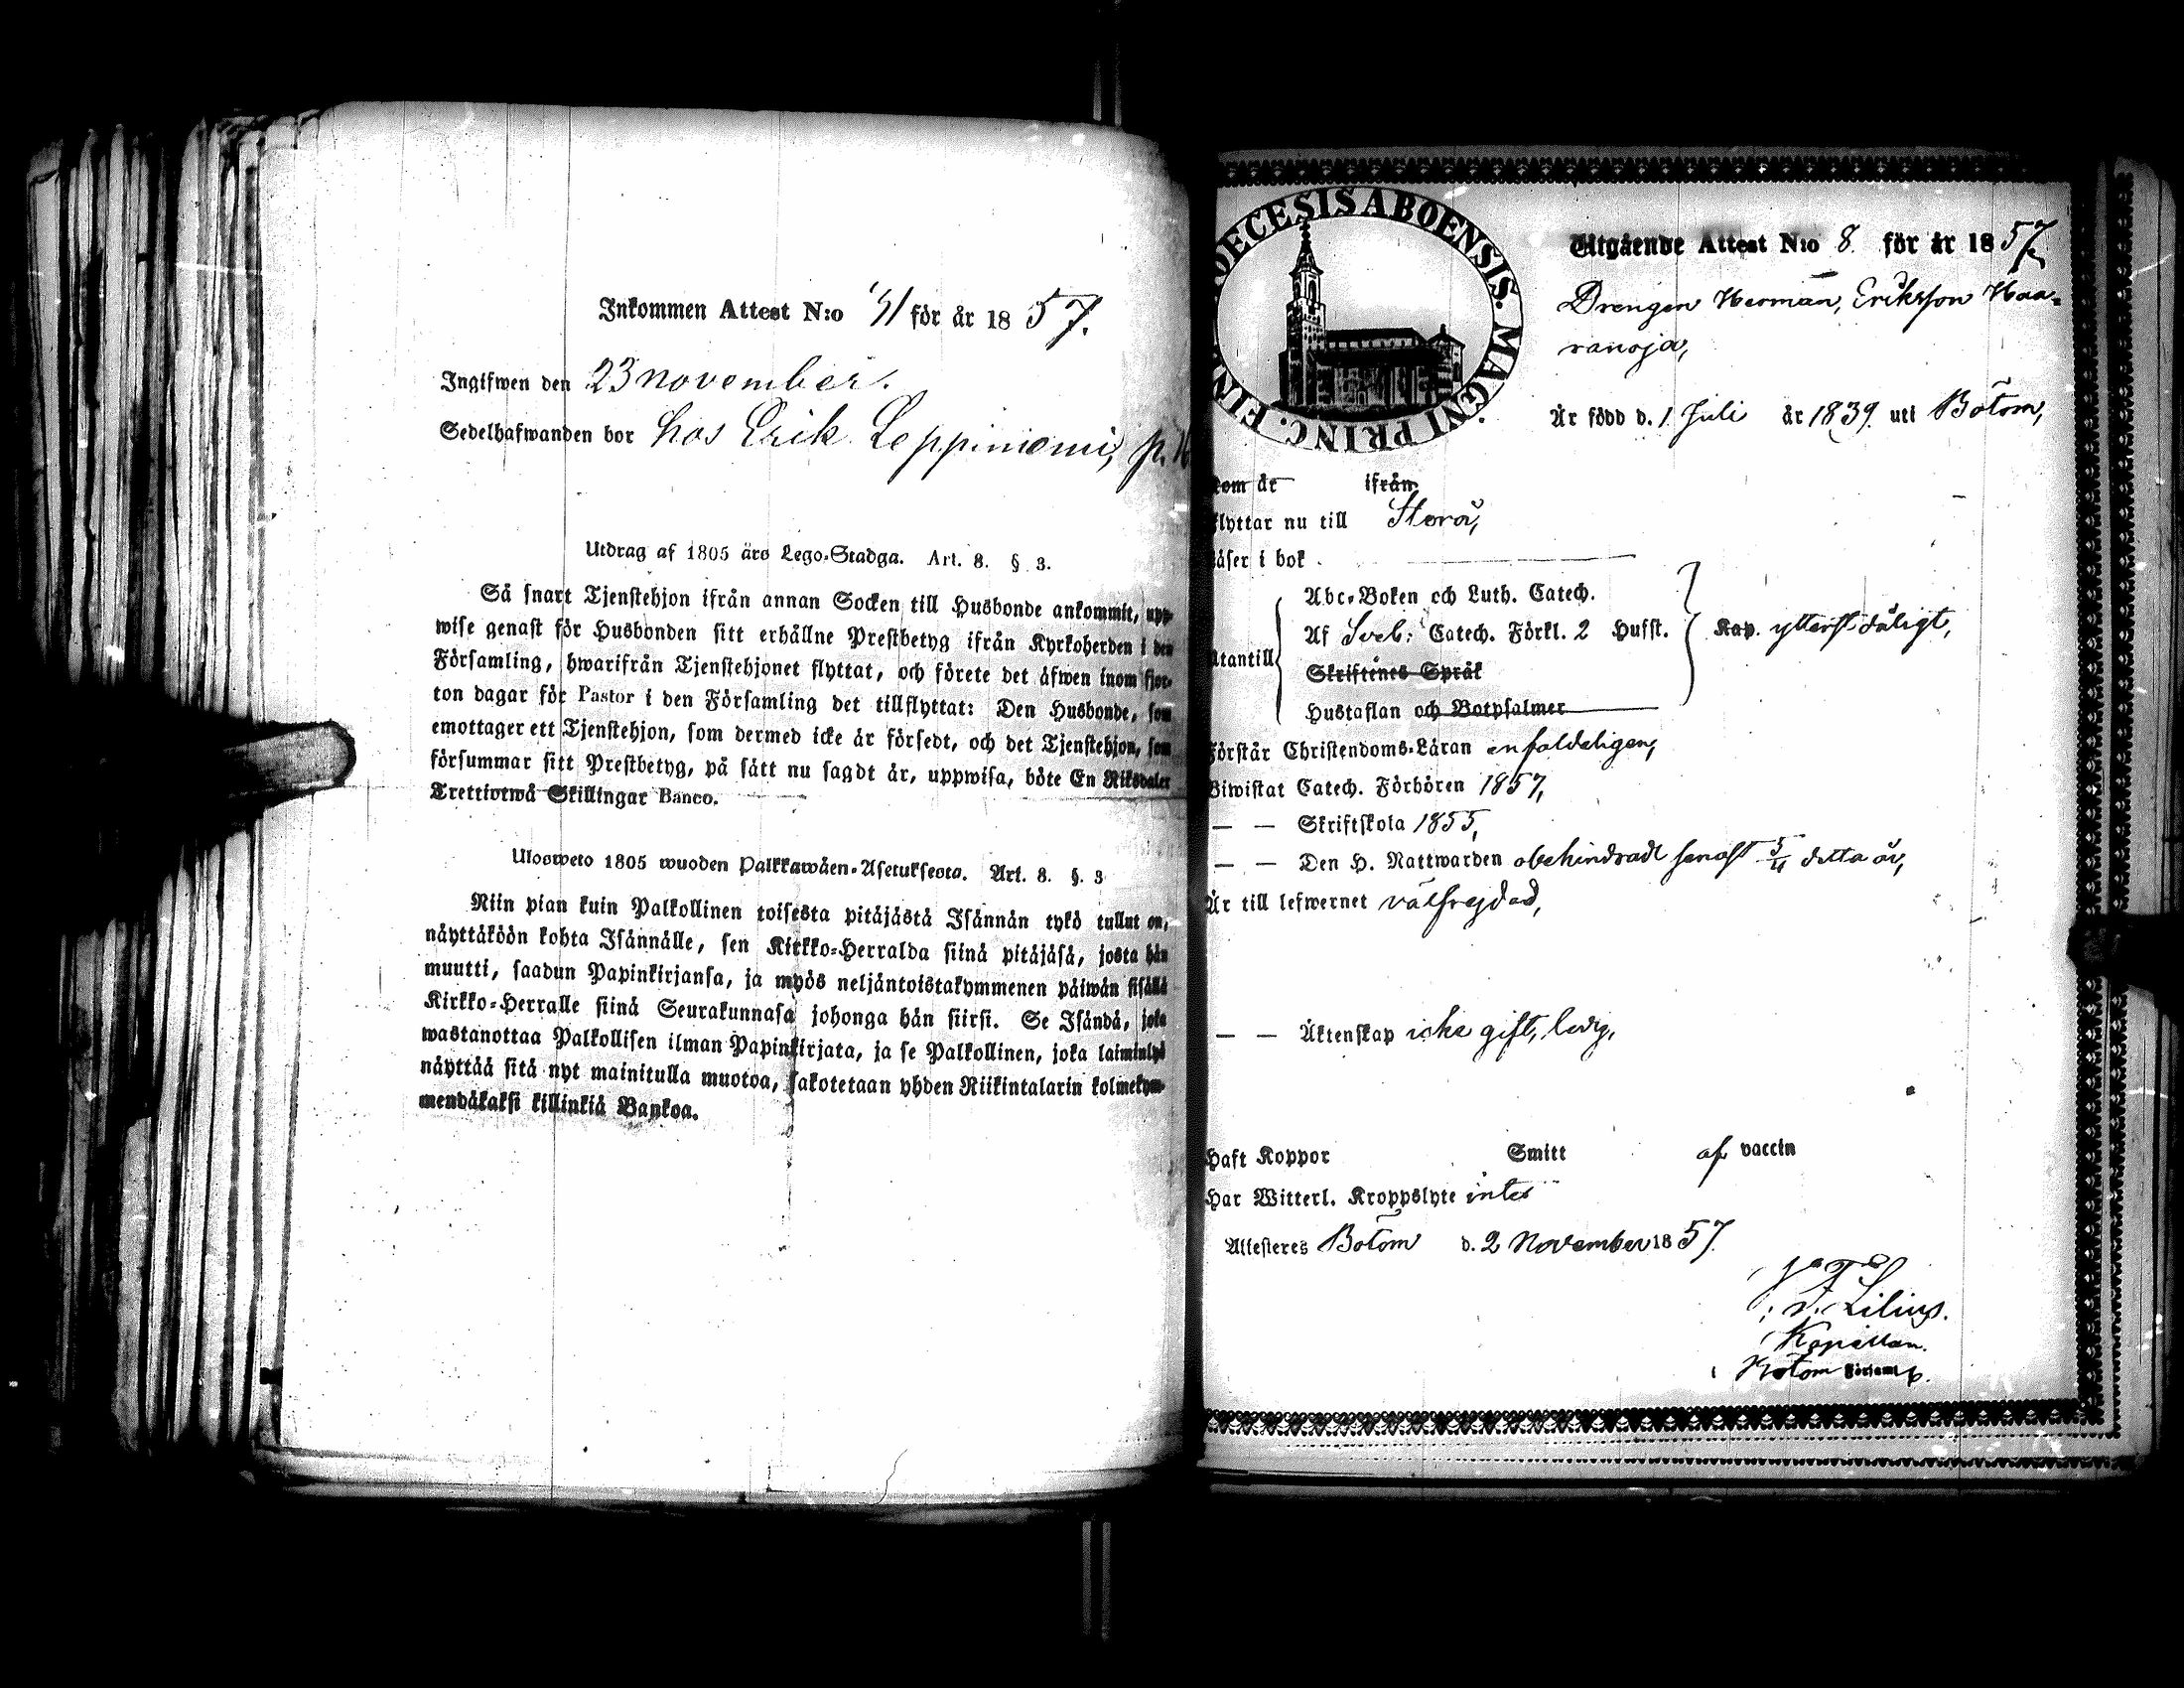 Inkommen Attest N:o 41 för år 1857.
Ingifwen den 23 november.
Sedelhafwanden bor hos Erik Leppiniemi, p.
Utdrag af 1805 års Lego-Stadga. Art. 8. § 3.
Så snart Tjenstehjon ifrån annan Socken till Husbonde ankommit, upp-
wise genast för Husbonden sitt erhållne Prestbetyg ifrån Kyrkoherden i den
Församling, hwarifrån Tjenstehjonet flyttat, och förete det äfwen inom fjor-
ton dagar för Pastor i den Församling det tillflyttat: Den Husbonde, som
emottager ett Tjenstehjon, som dermed icke är försedt, och det Tjenstehjon, som
försummar sitt Prestbetyg, på sätt nu sagdt är, uppwisa, böte En Riksdaler
Trettiotwå Skillingar Banco.
Ulosweto 1805 wuoden Palkkawäen-Asetuksesta. Art. 8. §. 3
Niin pian kuin Palkollinen toisesta pitäjästä Isännän tykö tullut on,
näyttäköön kohta Isännälle, sen Kirkko-Herralda siinä pitäjäsä, josta hän
muutti, saadun Papinkirjansa, ja myös neljäntoistakymmenen päiwän sisällä
Kirkko-Herralle siinä Seurakunnasa johonga hän siirsi. Se Isändä, joka
wastanottaa Palkollisen ilman Papinkirjata, ja se Palkollinen, joka laiminlyö
näyttää sitä nyt mainitulla muotoa, sakotetaan yhden Riikintalarin kolmekym-
mendäkaksi killinkiä Bankoa.
DECESIS ABOENSIS. MAGNI PRINC. FIN
Utgående Attest N:o 8. för år 1857
Drengen Herman, Eriksson Haa-
ranoja,
Är född d. 1 Juli år 1839. uti Bötom,
kom år ifrån
flyttar nu till Storå,
läser i bok
Abc-Boken och Luth. Catech.
Af Sveb. Catech. Förkl. 2 Husst.
Utantill
Skriftenes Språk
Hustaflan och Botpsalmer
Kap. ytterst dåligt,
Förstår Christendoms-Läran enfaldeligen,
Biwistat Catech. Förhören 1857,
— — Skriftskola 1855,
— — Den H. Nattwarden obehindradt senast 5/4 detta år,
Är till lefwernet välfrejdad,
— — Äktenskap icke gift, ledig,
Haft Koppor Smitt af vaccin
Har Witterl. Kroppslyte intet
Attesteres Bötom d. 2 November 1857.
Lilius.
Kapellan.
Bötom Församl